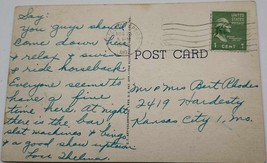 Say:
you guys should
come down here
& relax & swim
& ride horseback
Everyone seems to
have a fine
time here. At night
there is the bar
slot machines & bingo
& a good show uptown
Love Thelma.
POST CARD
1 CENT 1
Mr & Mrs Bert Rhodes
2419 Hardesty
Kansas City 1, Mo.